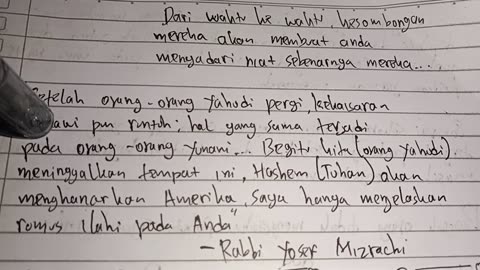 Dari waktu ke waktu, kesombongan
mereka akan membuat anda
menyadari niat sebenarnya mereka...
Setelah orang-orang Yahudi pergi, kekaisaran
pun runtuh; hal yang sama terjadi
pada orang-orang Yunani... Begitu kita (orang Yahudi)
meninggalkan tempat ini, Hashem (Tuhan) akan
menghancurkan Amerika, saya hanya menjelaskan
rumus ilahi pada Anda"
- Rabbi Yosef Mizrachi